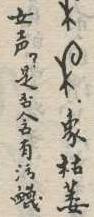 象枯萎
女声？是否含有污衊